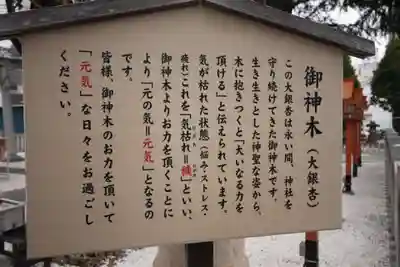 御神木（大銀杏）
この大銀杏は永い間、神社を
守り続けてきた御神木です。
生き生きとした神聖な姿から、
木に抱きつくと「大いなる力を
頂ける」と伝えられています。
気が枯れた状態（悩み・ストレス・
疲れ）これを「気枯れ＝穢」といい、
御神木よりお力を頂くことに
より「元の気＝元気」となるの
です。
皆様、御神木のお力を頂いて
「元気」な日々をお過ごし
ください。